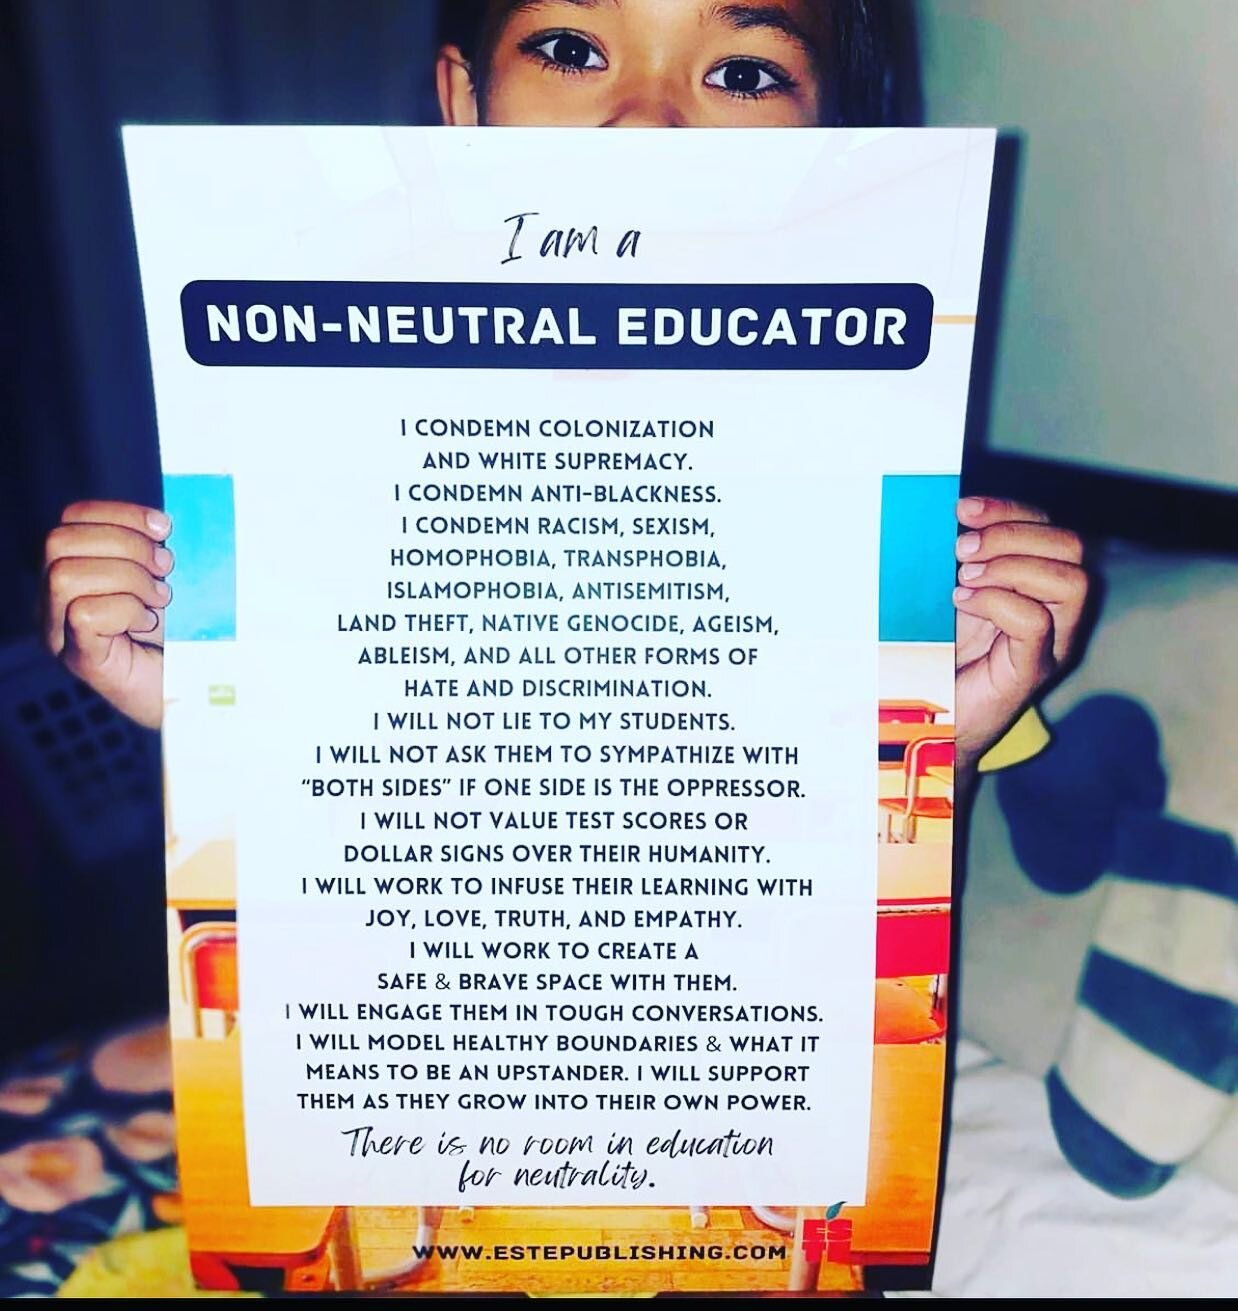 I am a
NON-NEUTRAL EDUCATOR
I CONDEMN COLONIZATION
AND WHITE SUPREMACY.
I CONDEMN ANTI-BLACKNESS.
I CONDEMN RACISM, SEXISM,
HOMOPHOBIA, TRANSPHOBIA,
ISLAMOPHOBIA, ANTISEMITISM,
LAND THEFT, NATIVE GENOCIDE, AGEISM,
ABLEISM, AND ALL OTHER FORMS OF
HATE AND DISCRIMINATION.
I WILL NOT LIE TO MY STUDENTS.
I WILL NOT ASK THEM TO SYMPATHIZE WITH
“BOTH SIDES” IF ONE SIDE IS THE OPPRESSOR.
I WILL NOT VALUE TEST SCORES OR
DOLLAR SIGNS OVER THEIR HUMANITY.
I WILL WORK TO INFUSE THEIR LEARNING WITH
JOY, LOVE, TRUTH, AND EMPATHY.
I WILL WORK TO CREATE A
SAFE & BRAVE SPACE WITH THEM.
I WILL ENGAGE THEM IN TOUGH CONVERSATIONS.
I WILL MODEL HEALTHY BOUNDARIES & WHAT IT
MEANS TO BE AN UPSTANDER. I WILL SUPPORT
THEM AS THEY GROW INTO THEIR OWN POWER.
There is no room in education
for neutrality.
WWW.ESTEPUBLISHING.COM